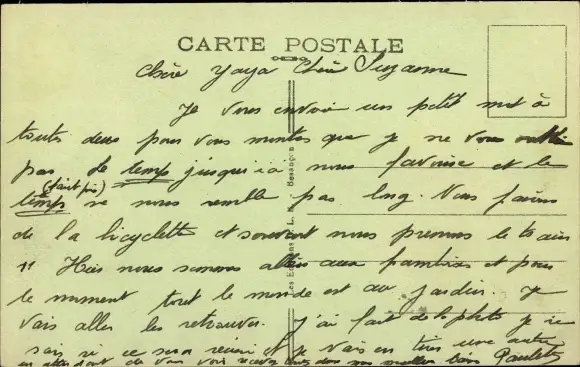 CARTE POSTALE
chère yaya chère Suzanne
Je vous envoie un petit mot à
toutes deux pour vous montrer que je ne vous oublie
pas le temps jusqu'ici nous favorise et le
temps ne nous semble pas long. Nous faisons
de la bicyclette et souvent nous prenons le
Hier nous sommes allés aux et pour
le moment tout le monde est au jardin. Je
vais aller les retrouver. j'ai fait de la photo je ne
sais si ce sera réussi et je vais en tirer une autre
en attendant de vous voir recevez toutes deux mes meilleurs bons Paulette
Les Editions L. - Besançon